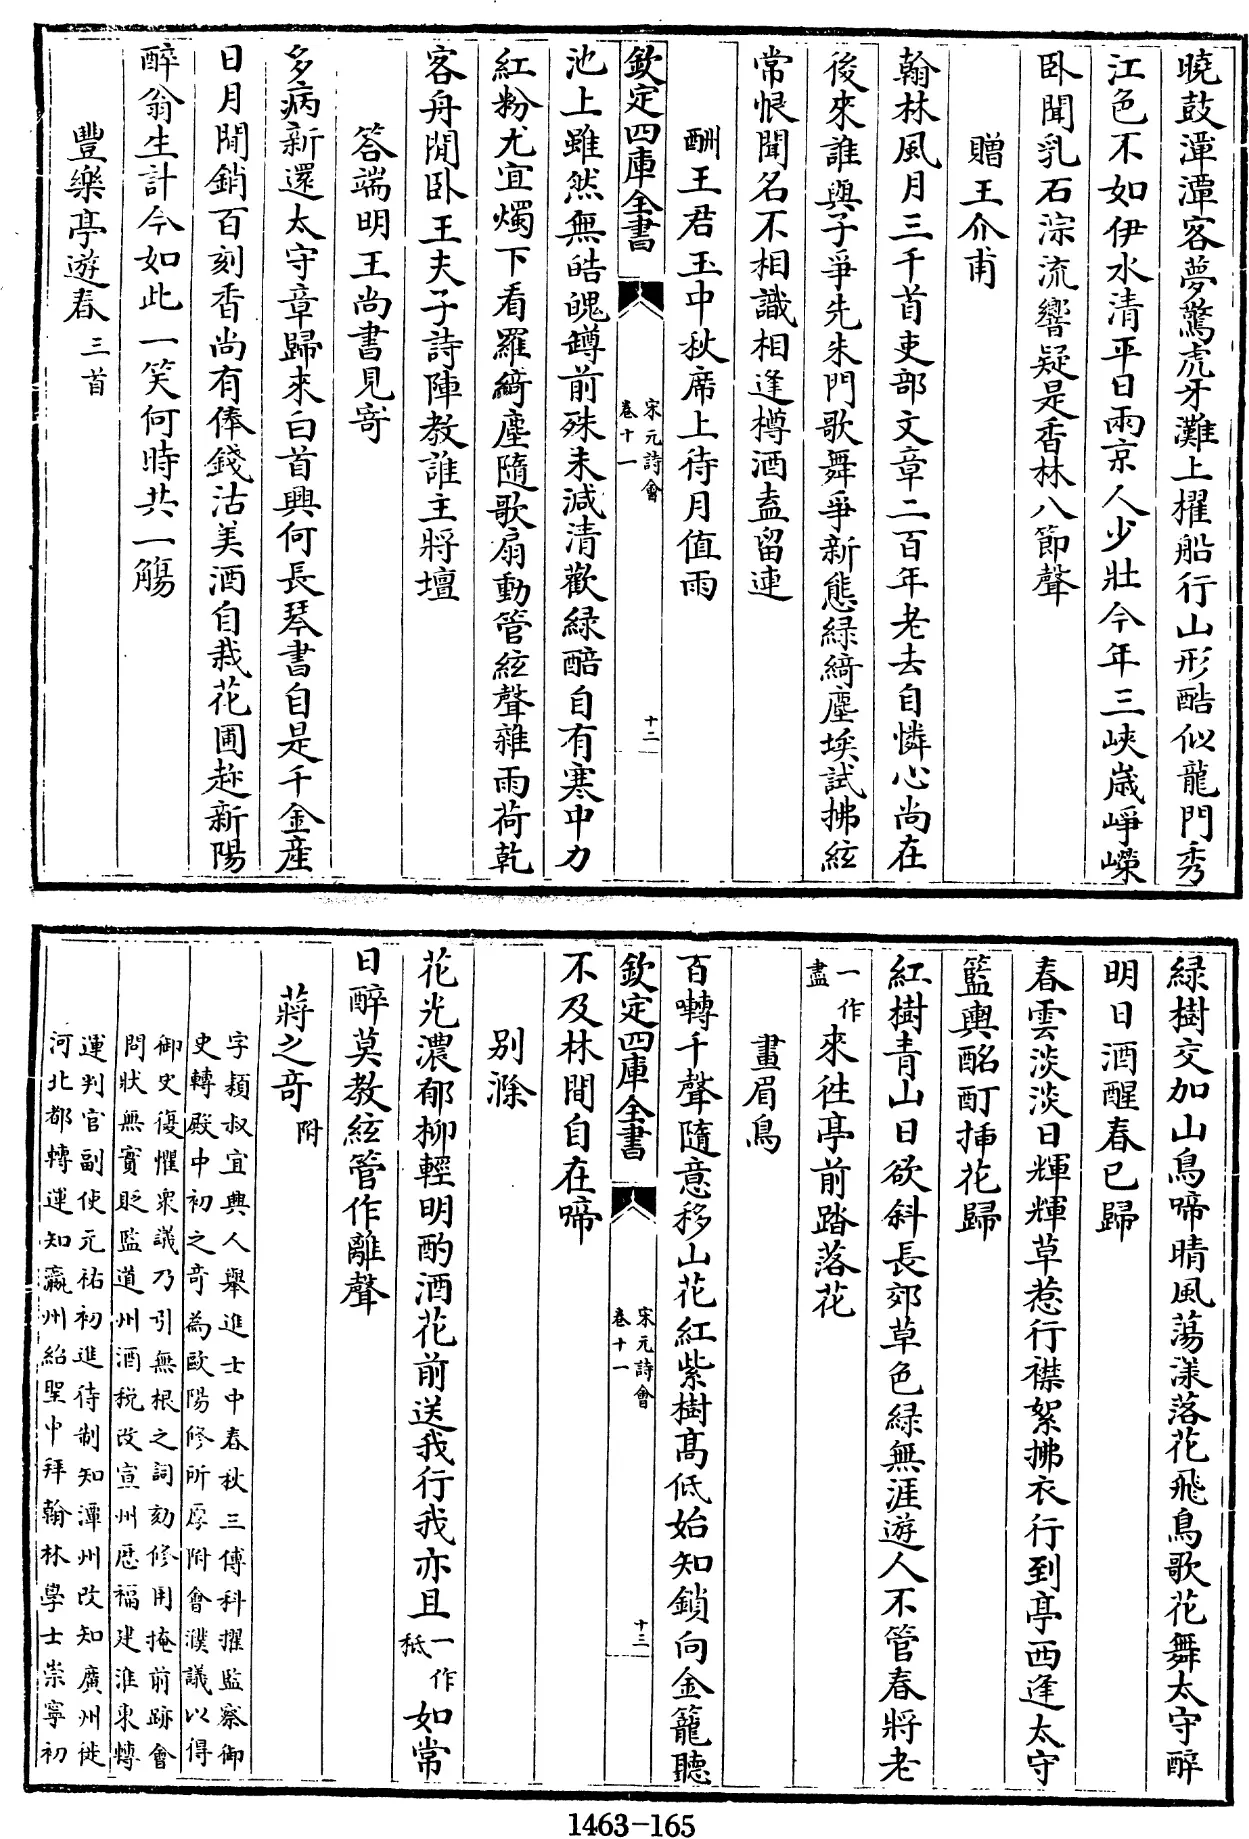 曉鼓潭潭客夢驚虎牙灘上櫂船行山形酷似龍門秀
江色不如伊水清平日兩京人少壯今年三峽歲崢嶸
臥聞乳石淙流響疑是香林八節聲
贈王介甫
翰林風月三千首吏部文章二百年老去自憐心尚在
後來誰與子爭先朱門歌舞爭新態綠綺塵埃試拂絃
常恨聞名不相識相逢樽酒盍留連
酬王君玉中秋席上待月值雨
欽定四庫全書 宋元詩會 卷十一 十二
池上雖然無皓魄罇前殊未減清歡綠醅自有寒中力
紅粉尤宜燭下看羅綺塵隨歌扇動管絃聲雜雨荷乾
客舟閒臥王夫子詩陣教誰主將壇
答端明王尚書見寄
多病新還太守章歸來白首興何長琴書自是千金產
日月閒銷百刻香尚有俸錢沽美酒自栽花圃趁新陽
醉翁生計今如此一笑何時共一觴
豐樂亭遊春 三首
綠樹交加山鳥啼晴風蕩漾落花飛鳥歌花舞太守醉
明日酒醒春已歸
春雲淡淡日輝輝草惹行襟絮拂衣行到亭西逢太守
籃輿酩酊插花歸
紅樹青山日欲斜長郊草色綠無涯遊人不管春將老
一作盡來往亭前踏落花
畫眉鳥
百囀千聲隨意移山花紅紫樹高低始知鎖向金籠聽
欽定四庫全書 宋元詩會 卷十一 十三
不及林間自在啼
別滁
花光濃郁柳輕明酌酒花前送我行我亦且一作秪如常
日醉莫教絃管作離聲
蔣之奇 附
字穎叔宜興人舉進士中春秋三傳科擢監察御
史轉殿中初之奇為歐陽修所厚附會濮議以得
御史復懼衆議乃引無根之詞劾修用掩前跡會
問狀無實貶監道州酒稅改宣州歷福建淮東轉
運判官副使元祐初進待制知潭州改知廣州徙
河北都轉運知瀛州紹聖中拜翰林學士崇寧初
1463-165